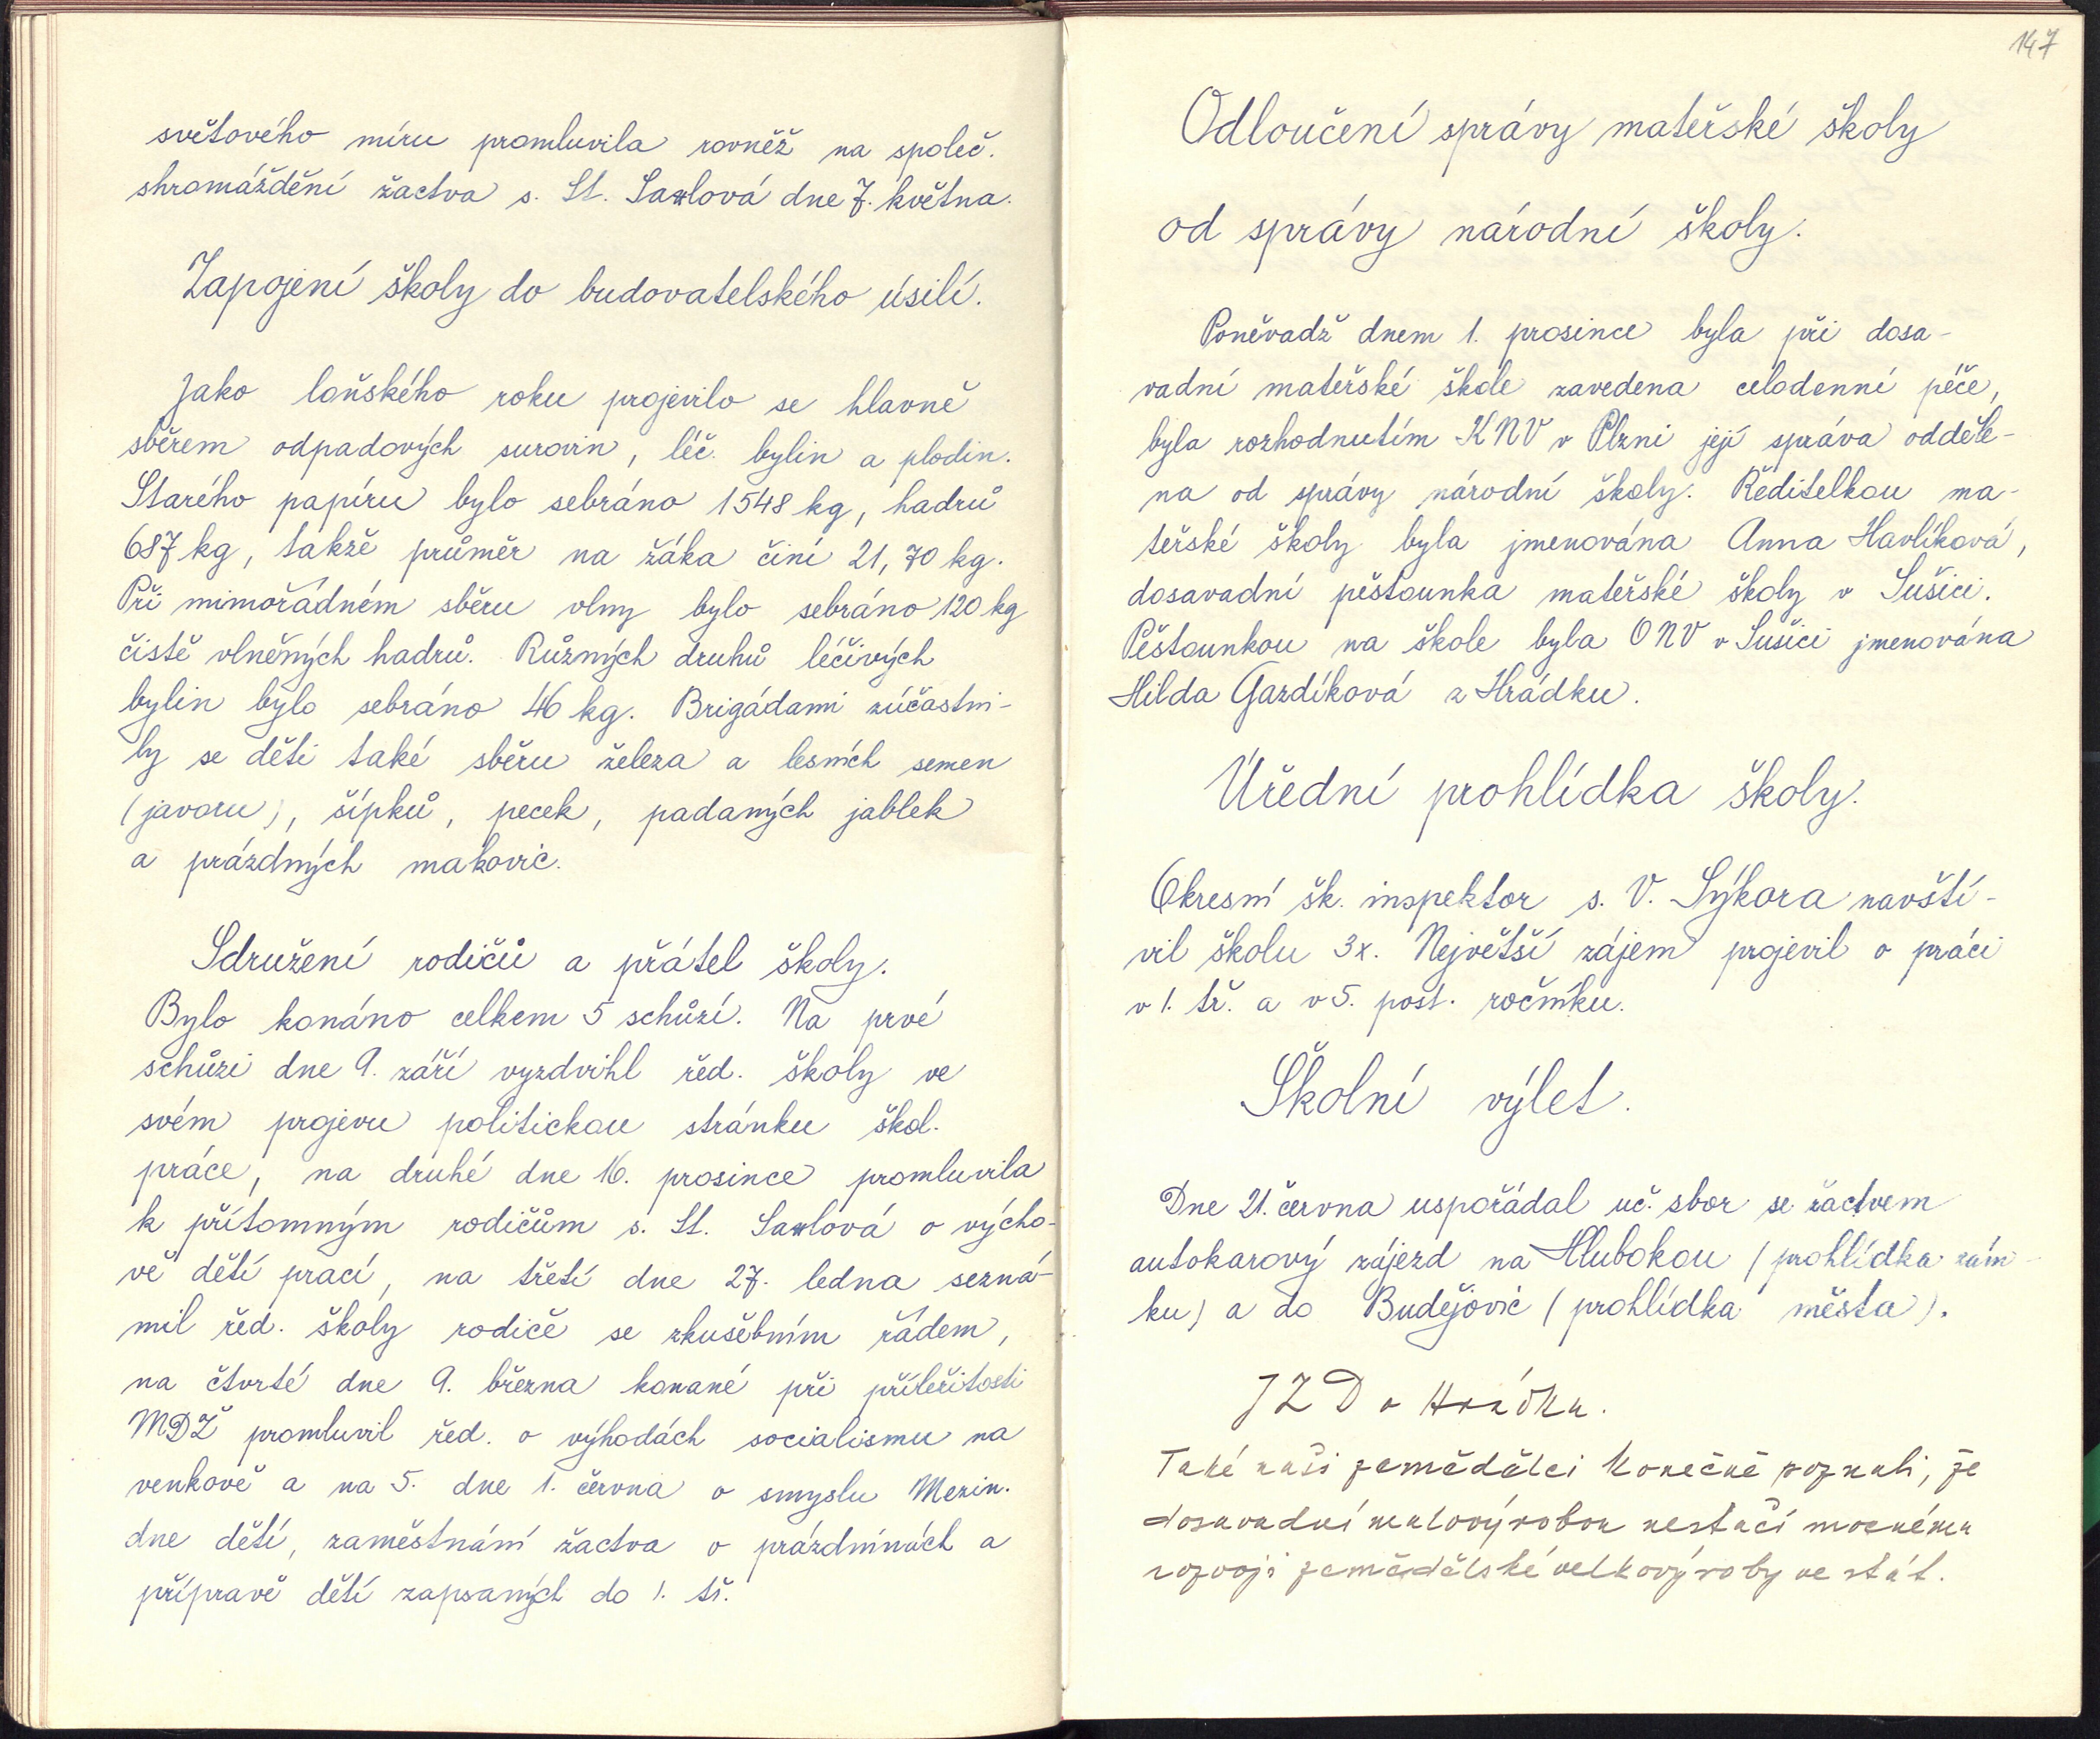 světového míru promluvila rovněž na společ.
shromáždění žactva s. St. Saxlová dne 7. května.
Zapojení školy do budovatelského úsilí.
Jako loňského roku projevilo se hlavně
sběrem odpadových surovin, léč. bylin a plodin.
Starého papíru bylo sebráno 1548 kg, hadrů
687 kg, takže průměr na žáka činí 21,70 kg.
Při mimořádném sběru vlny bylo sebráno 120 kg
čistě vlněných hadrů. Různých druhů léčivých
bylin bylo sebráno 46 kg. Brigádami zúčastni-
ly se děti také sběru železa a lesních semen
(javoru), šípků, pecek, padaných jablek
a prázdných makovic.
Sdružení rodičů a přátel školy.
Bylo konáno celkem 5 schůzí. Na prvé
schůzi dne 9. září vyzdvihl řed. školy ve
svém projevu politickou stránku škol.
práce, na druhé dne 16. prosince promluvila
k přítomným rodičům s. St. Saxlová o výcho-
vě dětí prací, na třetí dne 27. ledna sezná-
mil řed. školy rodiče se zkušebním řádem,
na čtvrté dne 9. března konané při příležitosti
MDŽ promluvil řed. o výhodách socialismu na
venkově a na 5. dne 1. června o smyslu Mezin.
dne dětí, zaměstnání žactva o prázdninách a
přípravě dětí zapsaných do 1. tř.
147
Odloučení správy mateřské školy
od správy národní školy.
Poněvadž dnem 1. prosince byla při dosa-
vadní mateřské škole zavedena celodenní péče,
byla rozhodnutím KNV v Plzni její správa odděle-
na od správy národní školy. Ředitelkou ma-
teřské školy byla jmenována Anna Havlíková,
dosavadní pěstounka mateřské školy v Sušici.
Pěstounkou na škole byla ONV v Sušici jmenována
Hilda Gazdíková z Hrádku.
Úřední prohlídka školy.
Okresní šk. inspektor s. V. Sýkora navští-
vil školu 3x. Největší zájem projevil o práci
v 1. tř. a v 5. post. ročníku.
Školní výlet.
Dne 21. června uspořádal uč. sbor se žactvem
autokarový zájezd na Hlubokou (prohlídka zám-
ku) a do Budějovic (prohlídka města).
JZD v Hrádku.
Také naši zemědělci konečně poznali, že
dosavadní malovýrobou nestačí mocnému
rozvoji zemědělské velkovýroby ve stát.